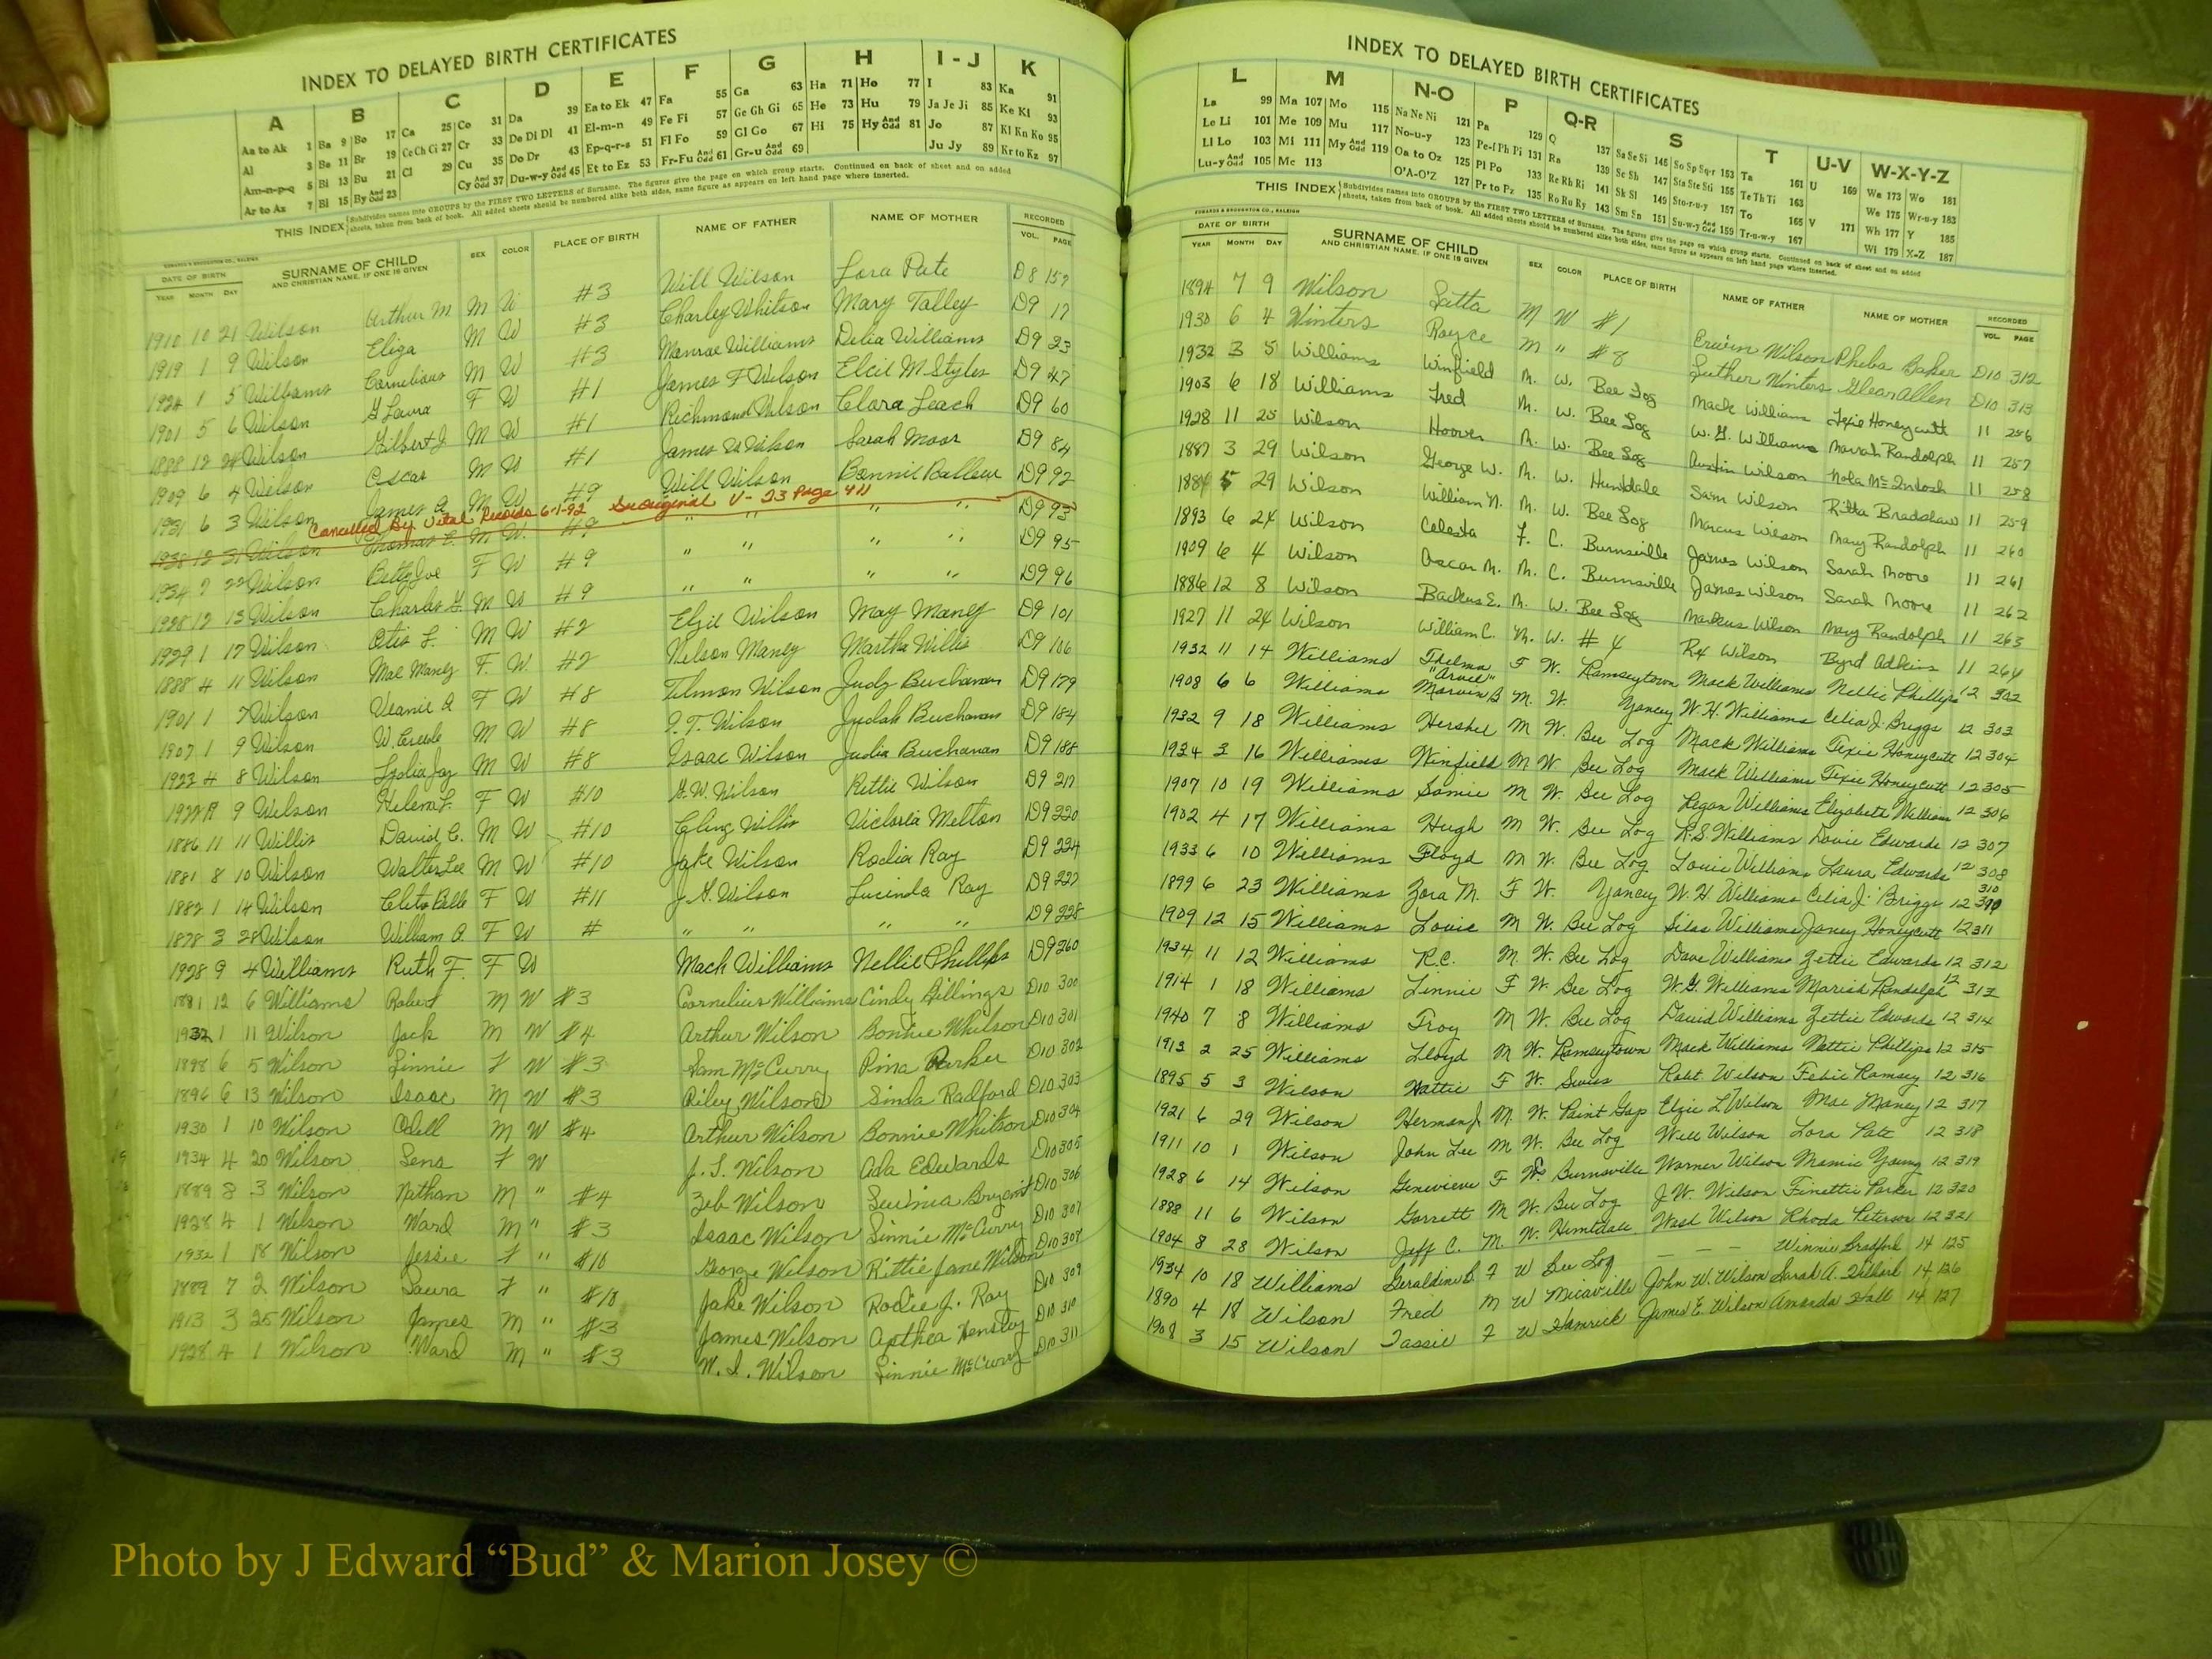 INDEX TO DELAYED BIRTH CERTIFICATES
A B C D E F G H I-J K
Aa to Ak 1 Ba 9 Bo 17 Ca 25 Co 31 Da 39 Ea to Ek 47 Fa 55 Ga 63 Ha 71 Ho 77 I 83 Ka 91
Al 3 Be 11 Br 19 Ce Ch Ci 27 Cr 33 De Di Dl 41 El-m-n 49 Fe Fi 57 Ge Gh Gi 65 He 73 Hu 79 Ja Je Ji 85 Ke Ki 93
Am-n-p-q 5 Bi 13 Bu 21 Cl 29 Cu 35 Do Dr 43 Ep-q-r-s 51 Fl Fo 59 Gl Go 67 Hi 75 Hy And Odd 81 Jo 87 Kl Kn Ko 95
Ar to Az 7 Bl 15 By And Odd 23 Cy And Odd 37 Du-w-y And Odd 45 Et to Ez 53 Fr-Fu And Odd 61 Gr-u And Odd 69 Ju Jy 89 Kr to Kz 97
THIS INDEX Subdivides names into GROUPS by the FIRST TWO LETTERS of Surname. The figures give the page on which group starts. Continued on back of sheet and on added
sheets, taken from back of book. All added sheets should be numbered alike both sides, same figure as appears on left hand page where inserted.
DATE OF BIRTH SURNAME OF CHILD SEX COLOR PLACE OF BIRTH NAME OF FATHER NAME OF MOTHER RECORDED
YEAR MONTH DAY AND CHRISTIAN NAME, IF ONE IS GIVEN VOL. PAGE
1910 10 21 Wilson Arthur M M W #3 Will Wilson Lora Pate D8 157
1919 1 9 Wilson Eliza M W #3 Charley Whitson Mary Talley D9 17
1924 1 5 Williams Cornelious M W #3 Monroe Williams Delia Williams D9 23
1901 5 6 Wilson G Laura F W #1 James F Wilson Elcil M Styles D9 47
1888 12 Wilson Gilbert J. M W #1 Richmond Wilson Clara Leach D9 60
1909 6 4 Wilson Oscar M W #1 James W Wilson Sarah Moor D9 84
1931 6 3 Wilson James A M W #9 Will Wilson Bonnie Ballew D9 92
Cancelled By Vital Records 6-1-92 See original V-23 Page 411
1938 12 31 Wilson Thomas E. M W. #9 " " " " D9 93
1934 7 22 Wilson Betty Joe F W #9 " " " " D9 95
1928 12 13 Wilson Charles G. M W #9 " " " " D9 96
1929 1 17 Wilson Otis L. M W #2 Elzie Wilson May Maney D9 101
1888 4 11 Wilson Mae Maney F. W. #2 Nelson Maney Martha Willis D9 106
1901 1 7 Wilson Veanie A F W #8 Tilmon Wilson Judy Buchanan D9 179
1907 1 9 Wilson W. M W #8 Wilson Judah Buchanan D9 184
8 Wilson Lydia Jay M W #8 Isaac Wilson Julia Buchanan D9 188
9 Wilson Helena F. F W #10 G.W. Wilson Rettie Wilson D9 217
1886 11 11 Willis David C. M W #10 Willis Victoria Melton D9 220
1881 8 10 Wilson Walter Lee M W #10 Jake Wilson Rodia Ray D9 224
1882 1 14 Wilson Cleta Belle F W #11 J.G. Wilson Lucinda Ray D9 227
1878 3 28 Wilson William A. F W # " " " " D9 228
1928 9 4 Williams Ruth F. F W Mack Williams Nellie Phillips D9 260
1881 12 6 Williams Robert M W #3 Cornelius Williams Cindy Billings D10 300
1932 1 11 Wilson Jack M W #4 Arthur Wilson Bonnie Whitson D10 301
1898 6 5 Wilson Linnie F W #3 Sam McCurry Pina Parker D10 302
1896 6 13 Wilson Isaac M W #3 Riley Wilson Sinda Radford D10 303
1930 1 10 Wilson Odell M W #4 Arthur Wilson Bonnie Whitson D10 304
1934 4 20 Wilson Lena F W J. S. Wilson Ada Edwards D10 305
1889 8 3 Wilson Nathan M " #4 Zeb Wilson D10 306
1928 4 1 Wilson Ward M " #3 Isaac Wilson Linnie McCurry D10 307
1932 1 18 Wilson Jessie F " #10 George Wilson Rittie Jane Wilson D10 308
1889 7 2 Wilson Laura F " #10 Jake Wilson Rodie J. Ray D10 309
1913 3 25 Wilson James M " #3 James Wilson Apthea Hensley D10 310
1928 4 1 Wilson Ward M " #3 W. I. Wilson Linnie McCurry D10 311
INDEX TO DELAYED BIRTH CERTIFICATES
L M N-O P Q-R S T U-V W-X-Y-Z
La 99 Ma 107 Mo 115 Na Ne Ni 121 Pa 129 Q 137 Sa Se Si 145 So Sp Sq-r 153 Ta 161 U 169 Wa 173 Wo 181
Le Li 101 Me 109 Mu 117 No-u-y 123 Pe-f Ph Pi 131 Ra 139 Sc Sh 147 Sta Ste Sti 155 Te Th Ti 163 We 175 Wr-u-y 183
Ll Lo 103 Mi 111 My And Odd 119 Oa to Oz 125 Pl Po 133 Re Rh Ri 141 Sk Sl 149 Sto-r-u-y 157 To 165 V 171 Wh 177 Y 185
Lu-y And Odd 105 Mc 113 O'A-O'Z 127 Pr to Pz 135 Ro Ru Ry 143 Sm Sn 151 Su-w-y And Odd 159 Tr-u-w-y 167 Wi 179 X-Z 187
THIS INDEX Subdivides names into GROUPS by the FIRST TWO LETTERS of Surname. The figures give the page on which group starts. Continued on back of sheet and on added
sheets, taken from back of book. All added sheets should be numbered alike both sides, same figure as appears on left hand page where inserted.
EDWARDS & BROUGHTON CO., RALEIGH
DATE OF BIRTH SURNAME OF CHILD SEX COLOR PLACE OF BIRTH NAME OF FATHER NAME OF MOTHER RECORDED
YEAR MONTH DAY AND CHRISTIAN NAME, IF ONE IS GIVEN VOL. PAGE
1894 7 9 Wilson Latta M W #1 Erwin Wilson Pheba Baker D10 312
1930 6 4 Winters Royce M " #8 Luther Winters Glear Allen D10 313
1932 3 5 Williams Winfield M. W. Bee Log Mack Williams Texie Honeycutt 11 256
1903 6 18 Williams Fred M. W. Bee Log W. G. Williams Mariah Randolph 11 257
1928 11 25 Wilson Hoover M. W. Bee Log Austin Wilson Nola McIntosh 11 258
1887 3 29 Wilson George W. M. W. Huntdale Sam Wilson Ritta Bradshaw 11 259
1884 5 29 Wilson William N. M. W. Bee Log Marcus Wilson Mary Randolph 11 260
1893 6 24 Wilson Celesta F. C. Burnsville James Wilson Sarah Moore 11 261
1909 6 4 Wilson Oscar M. M. C. Burnsville James Wilson Sarah Moore 11 262
1886 12 8 Wilson Backus E. M. W. Bee Log Markus Wilson Mary Randolph 11 263
1927 11 24 Wilson William C. M. W. #4 Rex Wilson Byrd Adkins 11 264
1932 11 14 Williams Thelma F W. Ramseytown Mack Williams Nellie Phillips 12 302
1908 6 6 Williams "Arvil" Marvin B M. W. Yancey W. H. Williams Celia J. Briggs 12 303
1932 9 18 Williams Hershel M W. Bee Log Mack Williams Texie Honeycutt 12 304
1934 3 16 Williams Winfield M W. Bee Log Mack Williams Texie Honeycutt 12 305
1907 10 19 Williams Samie M W. Bee Log Logan Williams Elizabeth William 12 306
1902 4 17 Williams Hugh M W. Bee Log R.S. Williams Dovie Edwards 12 307
1933 6 10 Williams Floyd M W. Bee Log Louie Williams Laura Edwards 12 308
1899 6 23 Williams Zora M. F W. Yancey W. H. Williams Celia J. Briggs 12 310
1909 12 15 Williams Louie M W. Bee Log Silas Williams Janey Honeycutt 12 311
1934 11 12 Williams R.C. M. W. Bee Log Dave Williams Zettie Edwards 12 312
1914 1 18 Williams Linnie F W. Bee Log W. G. Williams Mariah Randolph 12 313
1940 7 8 Williams Troy M W. Bee Log David Williams Zettie Edwards 12 314
1913 2 25 Williams Lloyd M W. Ramseytown Mack Williams Nettie Phillips 12 315
1895 5 3 Wilson Hattie F W. Swiss Robt. Wilson Febie Ramsey 12 316
1921 6 29 Wilson Herman J. M. W. Paint Gap Elzie L Wilson Mae Maney 12 317
1911 10 1 Wilson John Lee M W. Bee Log Will Wilson Lora Pate 12 318
1928 6 14 Wilson Genevieve F W. Burnsville Warner Wilson Mamie Young 12 319
1888 11 6 Wilson Garrett M W. Bee Log J. W. Wilson Finettie Parker 12 320
1904 8 28 Wilson Jeff C. M. W. Huntdale Wash Wilson Rhoda Peterson 12 321
1934 10 18 Williams Geraldine B. F W Bee Log — — — Winnie Bradford 14 125
1890 4 18 Wilson Fred M W Micaville John W. Wilson Sarah A. 14 126
1908 3 15 Wilson Tassie F W Hamrick James E. Wilson Amanda Hall 14 127
Photo by J Edward “Bud” & Marion Josey ©